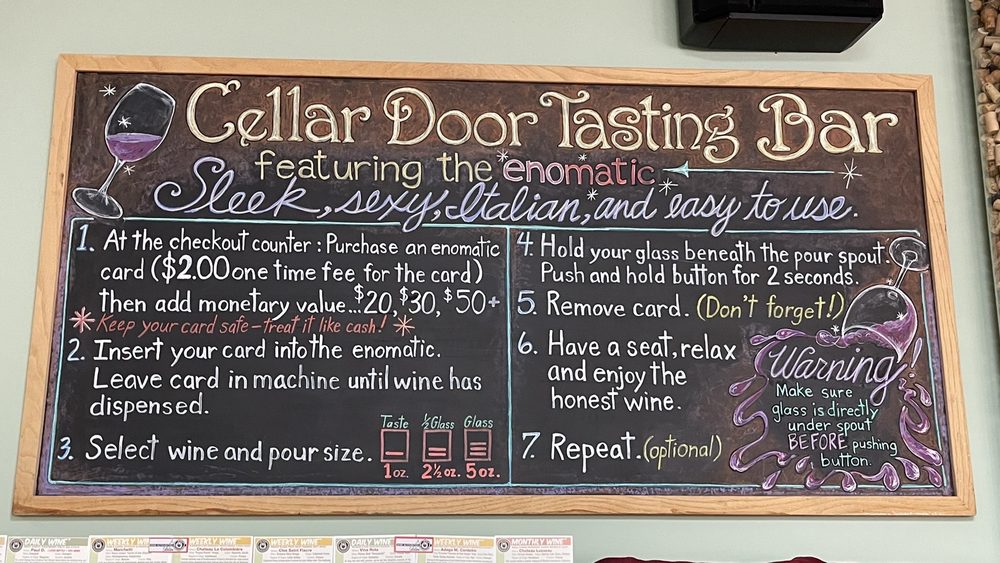 Cellar Door Tasting Bar
featuring the enomatic
Sleek, sexy, Italian, and easy to use.
1. At the checkout counter: Purchase an enomatic
card ($2.00 one time fee for the card)
then add monetary value...$20, $30, $50+
*Keep your card safe - treat it like cash! *
2. Insert your card into the enomatic.
Leave card in machine until wine has
dispensed.
3. Select wine and pour size.
Taste ½ Glass Glass
1 oz. 2½ oz. 5 oz.
4. Hold your glass beneath the pour spout.
Push and hold button for 2 seconds.
5. Remove card. (Don't forget!)
6. Have a seat, relax
and enjoy the
honest wine.
7. Repeat. (optional)
Warning!
Make sure
glass is directly
under spout
BEFORE pushing
button.
DAILY WINE
WEEKLY WINE
WEEKLY WINE
WEEKLY WINE
DAILY WINE
WEEKLY WINE
MONTHLY WINE